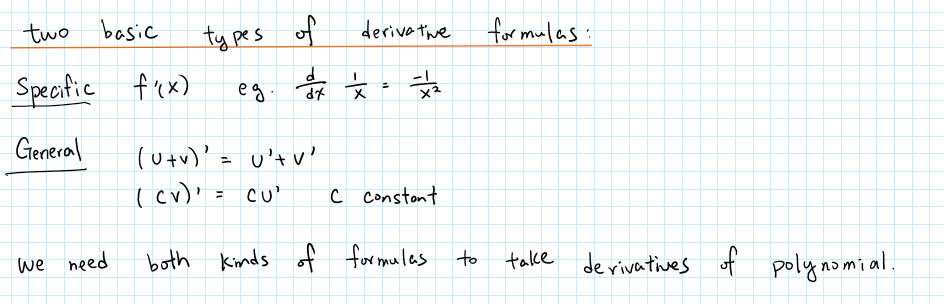 two basic types of derivative formulas:
Specific f'(x) eg. d/dx 1/x = -1/x²
General (u+v)' = u'+v'
(cv)' = cu' c constant
we need both kinds of formulas to take derivatives of polynomial.